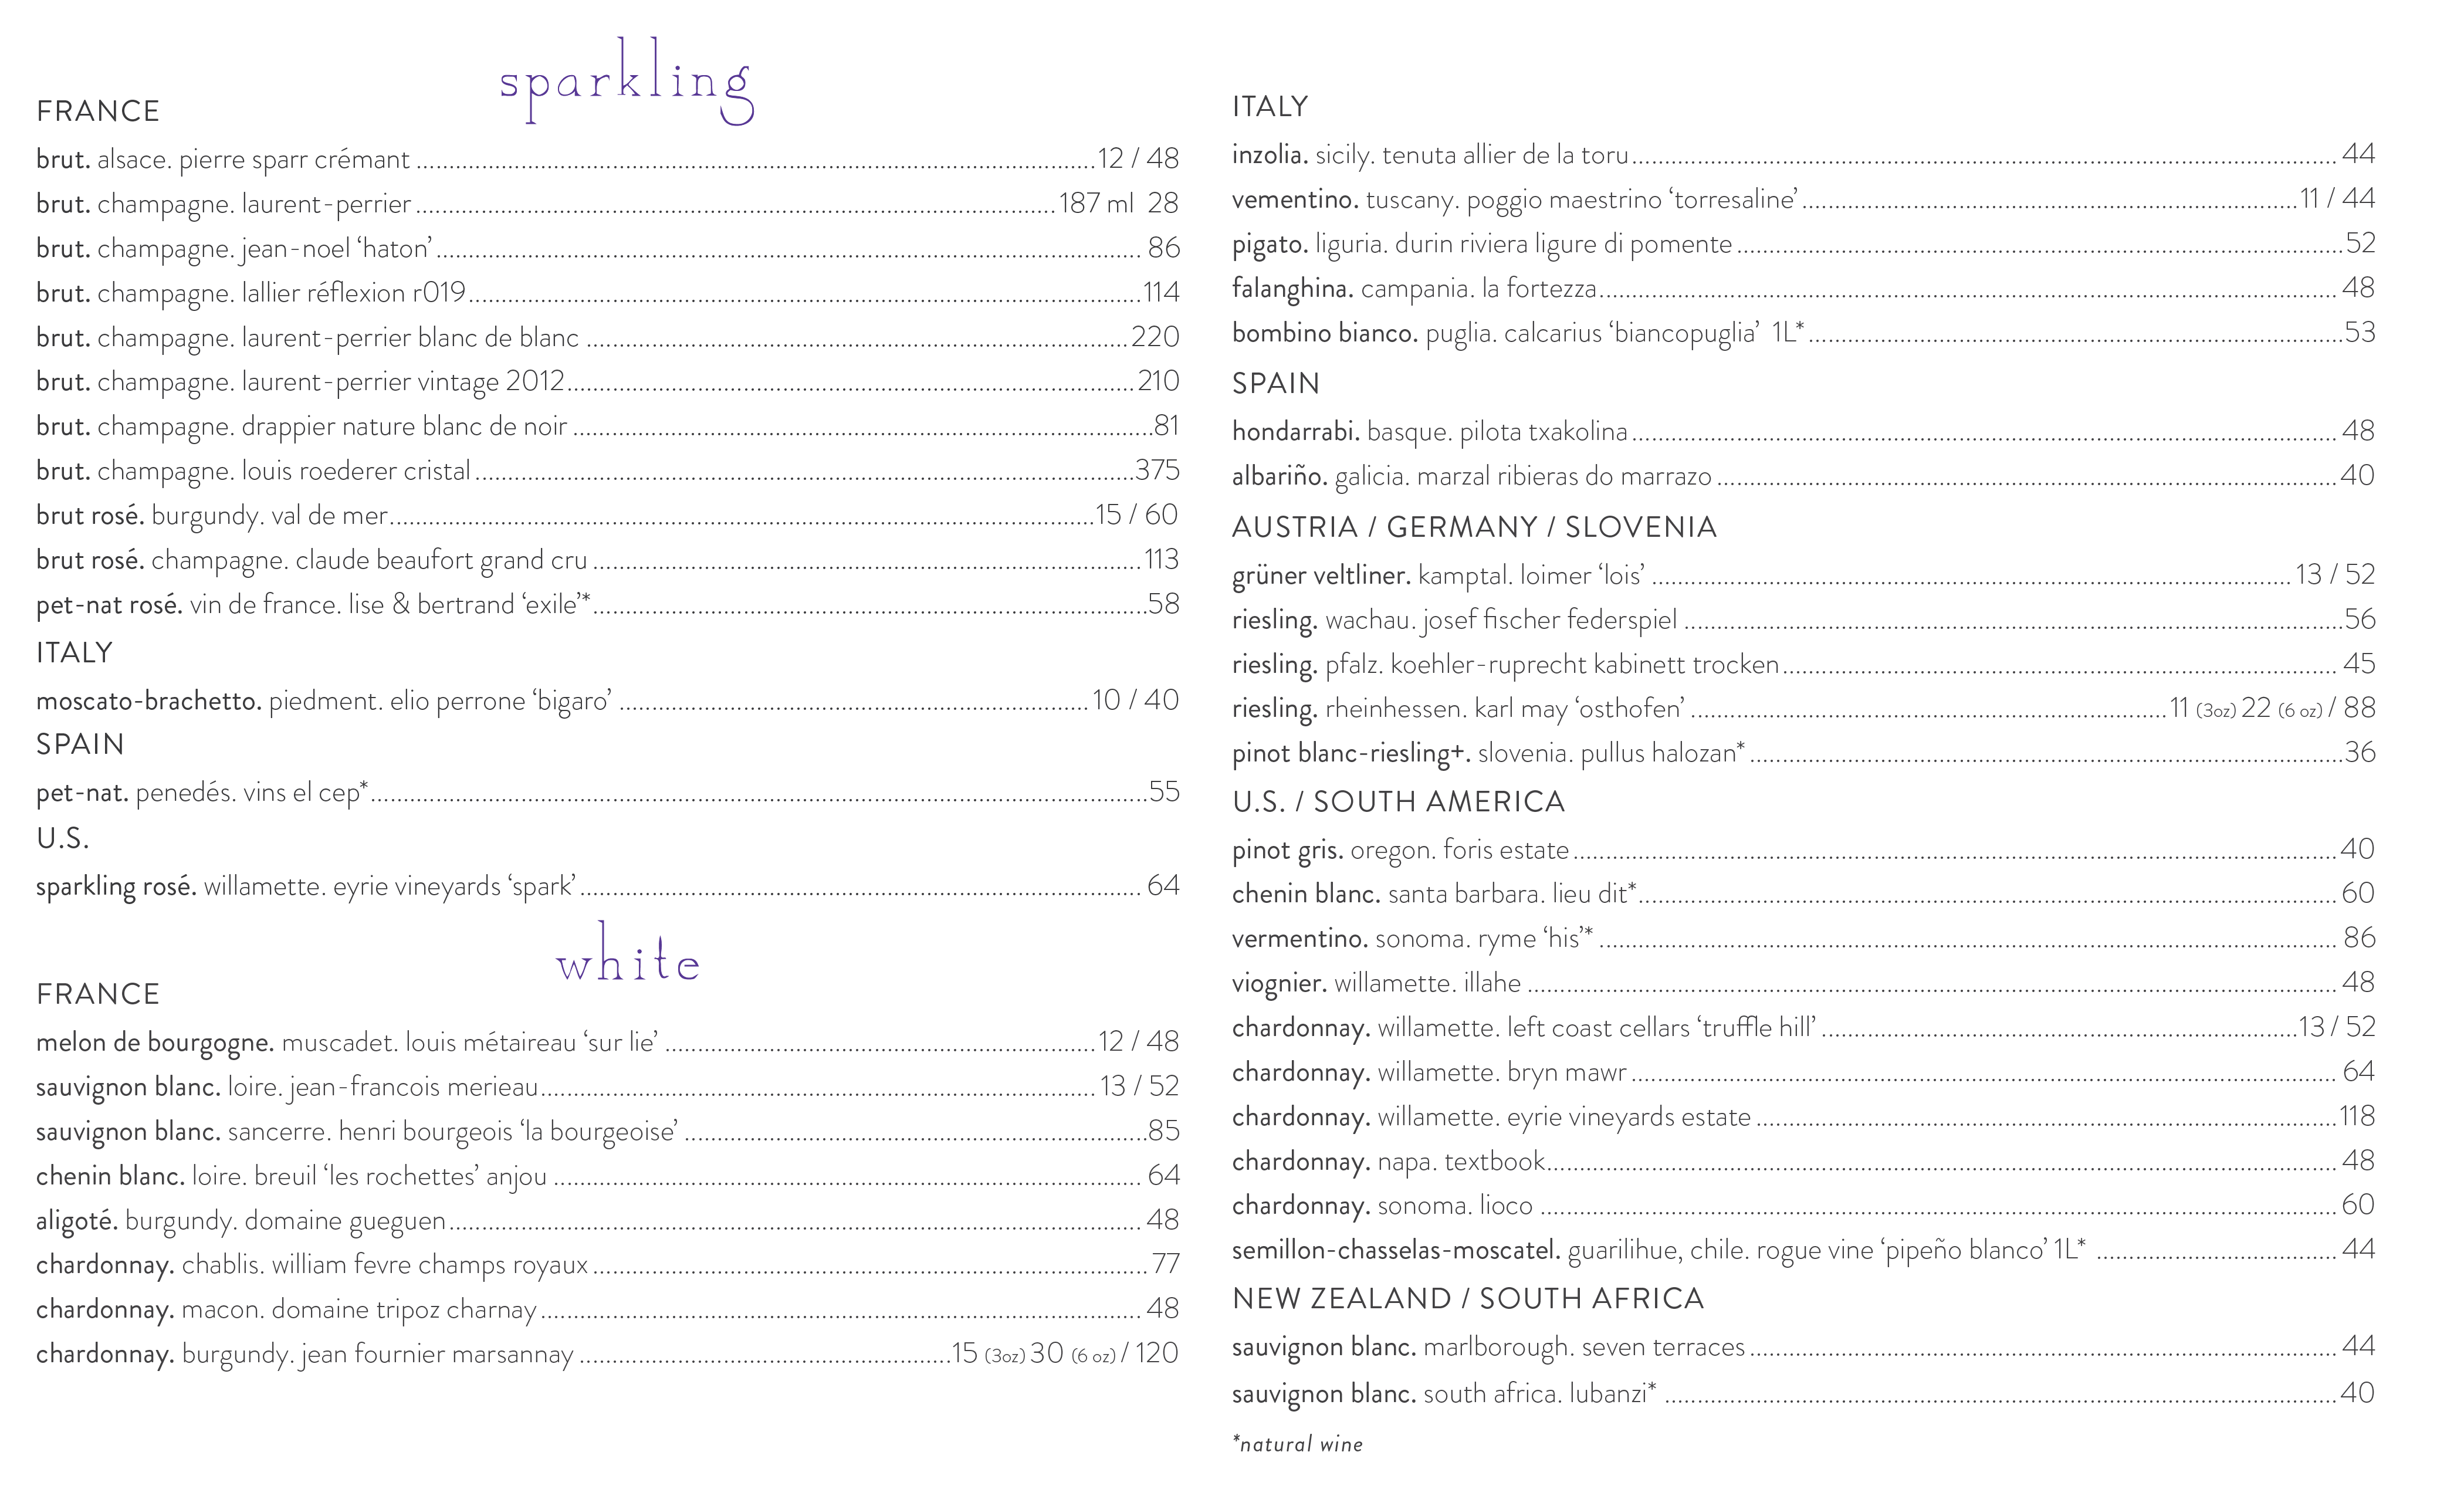 sparkling
FRANCE
brut. alsace. pierre sparr crémant 12 / 48
brut. champagne. laurent-perrier 187 ml 28
brut. champagne. jean-noel ‘haton’ 86
brut. champagne. lallier réflexion r019 114
brut. champagne. laurent-perrier blanc de blanc 220
brut. champagne. laurent-perrier vintage 2012 210
brut. champagne. drappier nature blanc de noir 81
brut. champagne. louis roederer cristal 375
brut rosé. burgundy. val de mer 15 / 60
brut rosé. champagne. claude beaufort grand cru 113
pet-nat rosé. vin de france. lise & bertrand ‘exile’* 58
ITALY
moscato-brachetto. piedment. elio perrone ‘bigaro’ 10 / 40
SPAIN
pet-nat. penedés. vins el cep* 55
U.S.
sparkling rosé. willamette. eyrie vineyards ‘spark’ 64
white
FRANCE
melon de bourgogne. muscadet. louis métaireau ‘sur lie’ 12 / 48
sauvignon blanc. loire. jean-francois merieau 13 / 52
sauvignon blanc. sancerre. henri bourgeois ‘la bourgeoise’ 85
chenin blanc. loire. breuil ‘les rochettes’ anjou 64
aligoté. burgundy. domaine gueguen 48
chardonnay. chablis. william fevre champs royaux 77
chardonnay. macon. domaine tripoz charnay 48
chardonnay. burgundy. jean fournier marsannay 15 (3oz) 30 (6 oz) / 120
ITALY
inzolia. sicily. tenuta allier de la toru 44
vementino. tuscany. poggio maestrino ‘torresaline’ 11 / 44
pigato. liguria. durin riviera ligure di pomente 52
falanghina. campania. la fortezza 48
bombino bianco. puglia. calcarius ‘biancopuglia’ 1L* 53
SPAIN
hondarrabi. basque. pilota txakolina 48
albariño. galicia. marzal ribieras do marrazo 40
AUSTRIA / GERMANY / SLOVENIA
grüner veltliner. kamptal. loimer ‘lois’ 13 / 52
riesling. wachau. josef fischer federspiel 56
riesling. pfalz. koehler-ruprecht kabinett trocken 45
riesling. rheinhessen. karl may ‘osthofen’ 11 (3oz) 22 (6 oz) / 88
pinot blanc-riesling+. slovenia. pullus halozan* 36
U.S. / SOUTH AMERICA
pinot gris. oregon. foris estate 40
chenin blanc. santa barbara. lieu dit* 60
vermentino. sonoma. ryme ‘his’* 86
viognier. willamette. illahe 48
chardonnay. willamette. left coast cellars ‘truffle hill’ 13 / 52
chardonnay. willamette. bryn mawr 64
chardonnay. willamette. eyrie vineyards estate 118
chardonnay. napa. textbook 48
chardonnay. sonoma. lioco 60
semillon-chasselas-moscatel. guarilihue, chile. rogue vine ‘pipeño blanco’ 1L* 44
NEW ZEALAND / SOUTH AFRICA
sauvignon blanc. marlborough. seven terraces 44
sauvignon blanc. south africa. lubanzi* 40
*natural wine